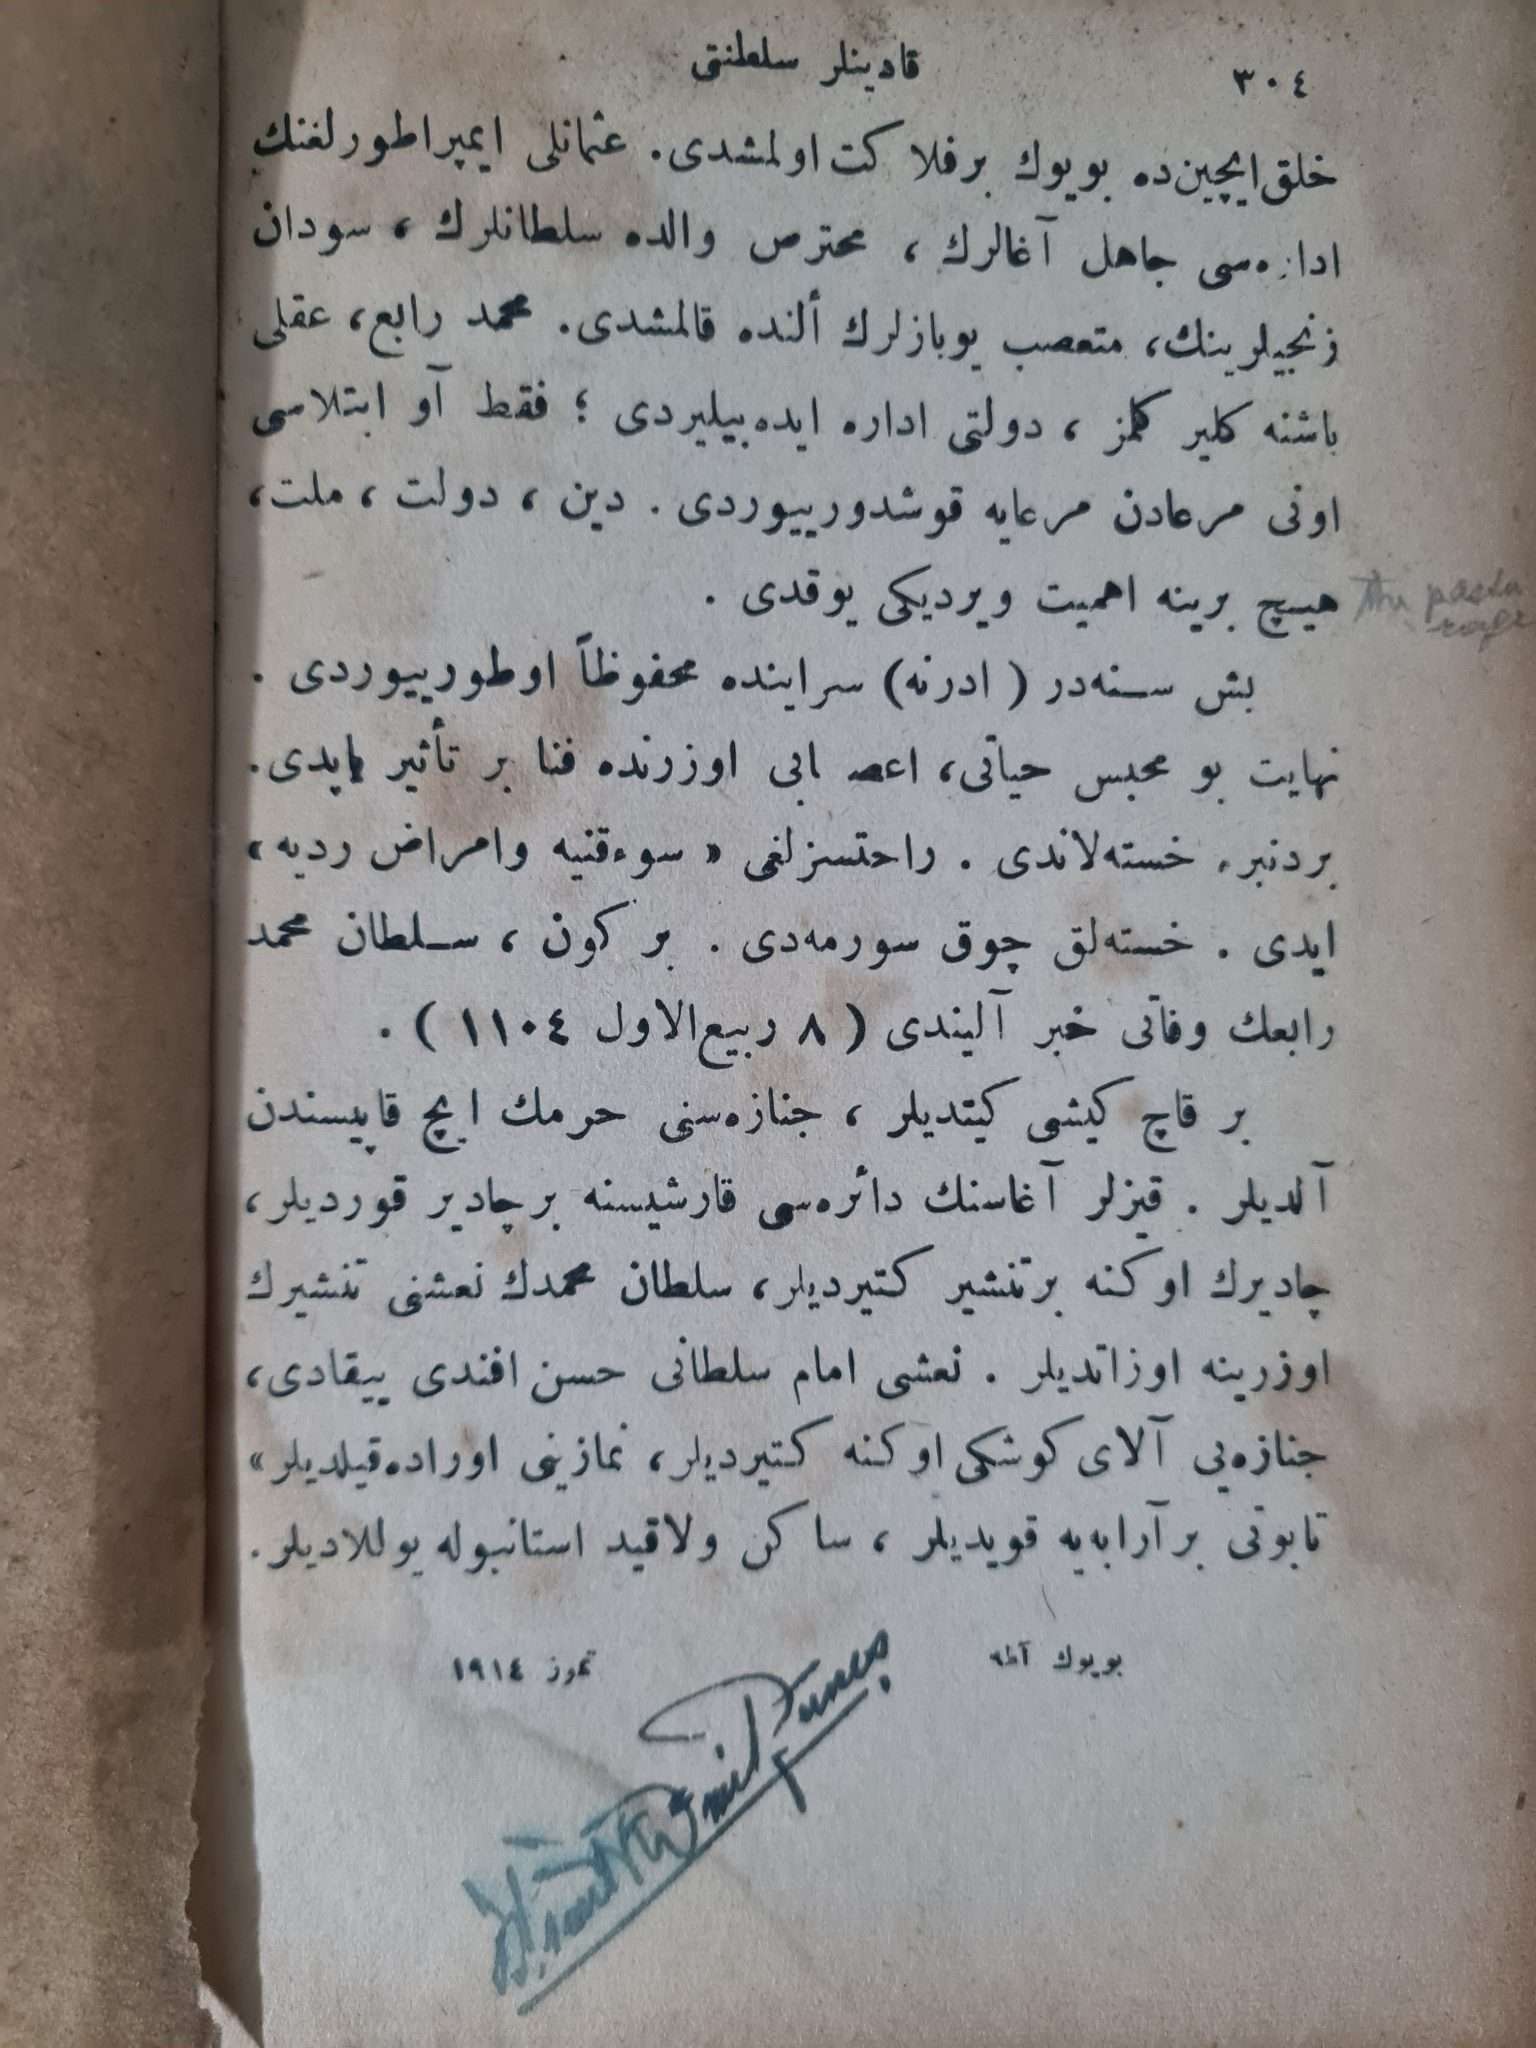 ٣٠٤
قادینلر سلطنتی
خلق ایچین ده بویوك بر فلاكت اولمشدی. عثمانلی ایمپراطورلغنك
اداره‌سی جاهل آغالرك ، محترص والده سلطانلرك ، سودان
زنجیلرینك، متعصب یوبازلرك ألنده قالمشدی. محمد رابع، عقلی
باشنه كلیر كلمز ، دولتی اداره ایده بیلیردی ؛ فقط آو ابتلاسی
اونی مرعادن مرعایه قوشدورییوردی . دین ، دولت ، ملت،
هیچ برینه اهمیت ویردیكی یوقدی .
بش سنه‌در ( ادرنه) سراینده محفوظاً اوطورییوردی .
نهایت بو محبس حیاتی، اعصابی اوزرنده فنا بر تأثیر یاپدی.
بردنبره خسته‌لاندی . راحتسزلغی « سوء‌قنیه وامراض ردیه »
ایدی . خسته‌لق چوق سورمه‌دی . بر كون ، سلطان محمد
رابعك وفاتی خبر آلیندی ( ٨ ربیع‌الاول ١١٠٤ ) .
بر قاچ كیشی كیتدیلر ، جنازه‌سنی حرمك ایچ قاپیسندن
آلدیلر . قیزلر آغاسنك دائره‌سی قارشیسنه بر چادیر قوردیلر،
چادیرك اوكنه بر تنشیر كتیردیلر، سلطان محمدك نعشنی تنشیرك
اوزرینه اوزاتدیلر . نعشی امام سلطانی حسن افندی ییقادی،
جنازه‌یی آلای كوشكی اوكنه كتیردیلر، نمازینی اوراده قیلدیلر»
تابوتی بر آرابه‌یه قویدیلر ، ساكن ولاقید استانبوله یوللادیلر.
بویوك آطه
تموز ١٩١٤